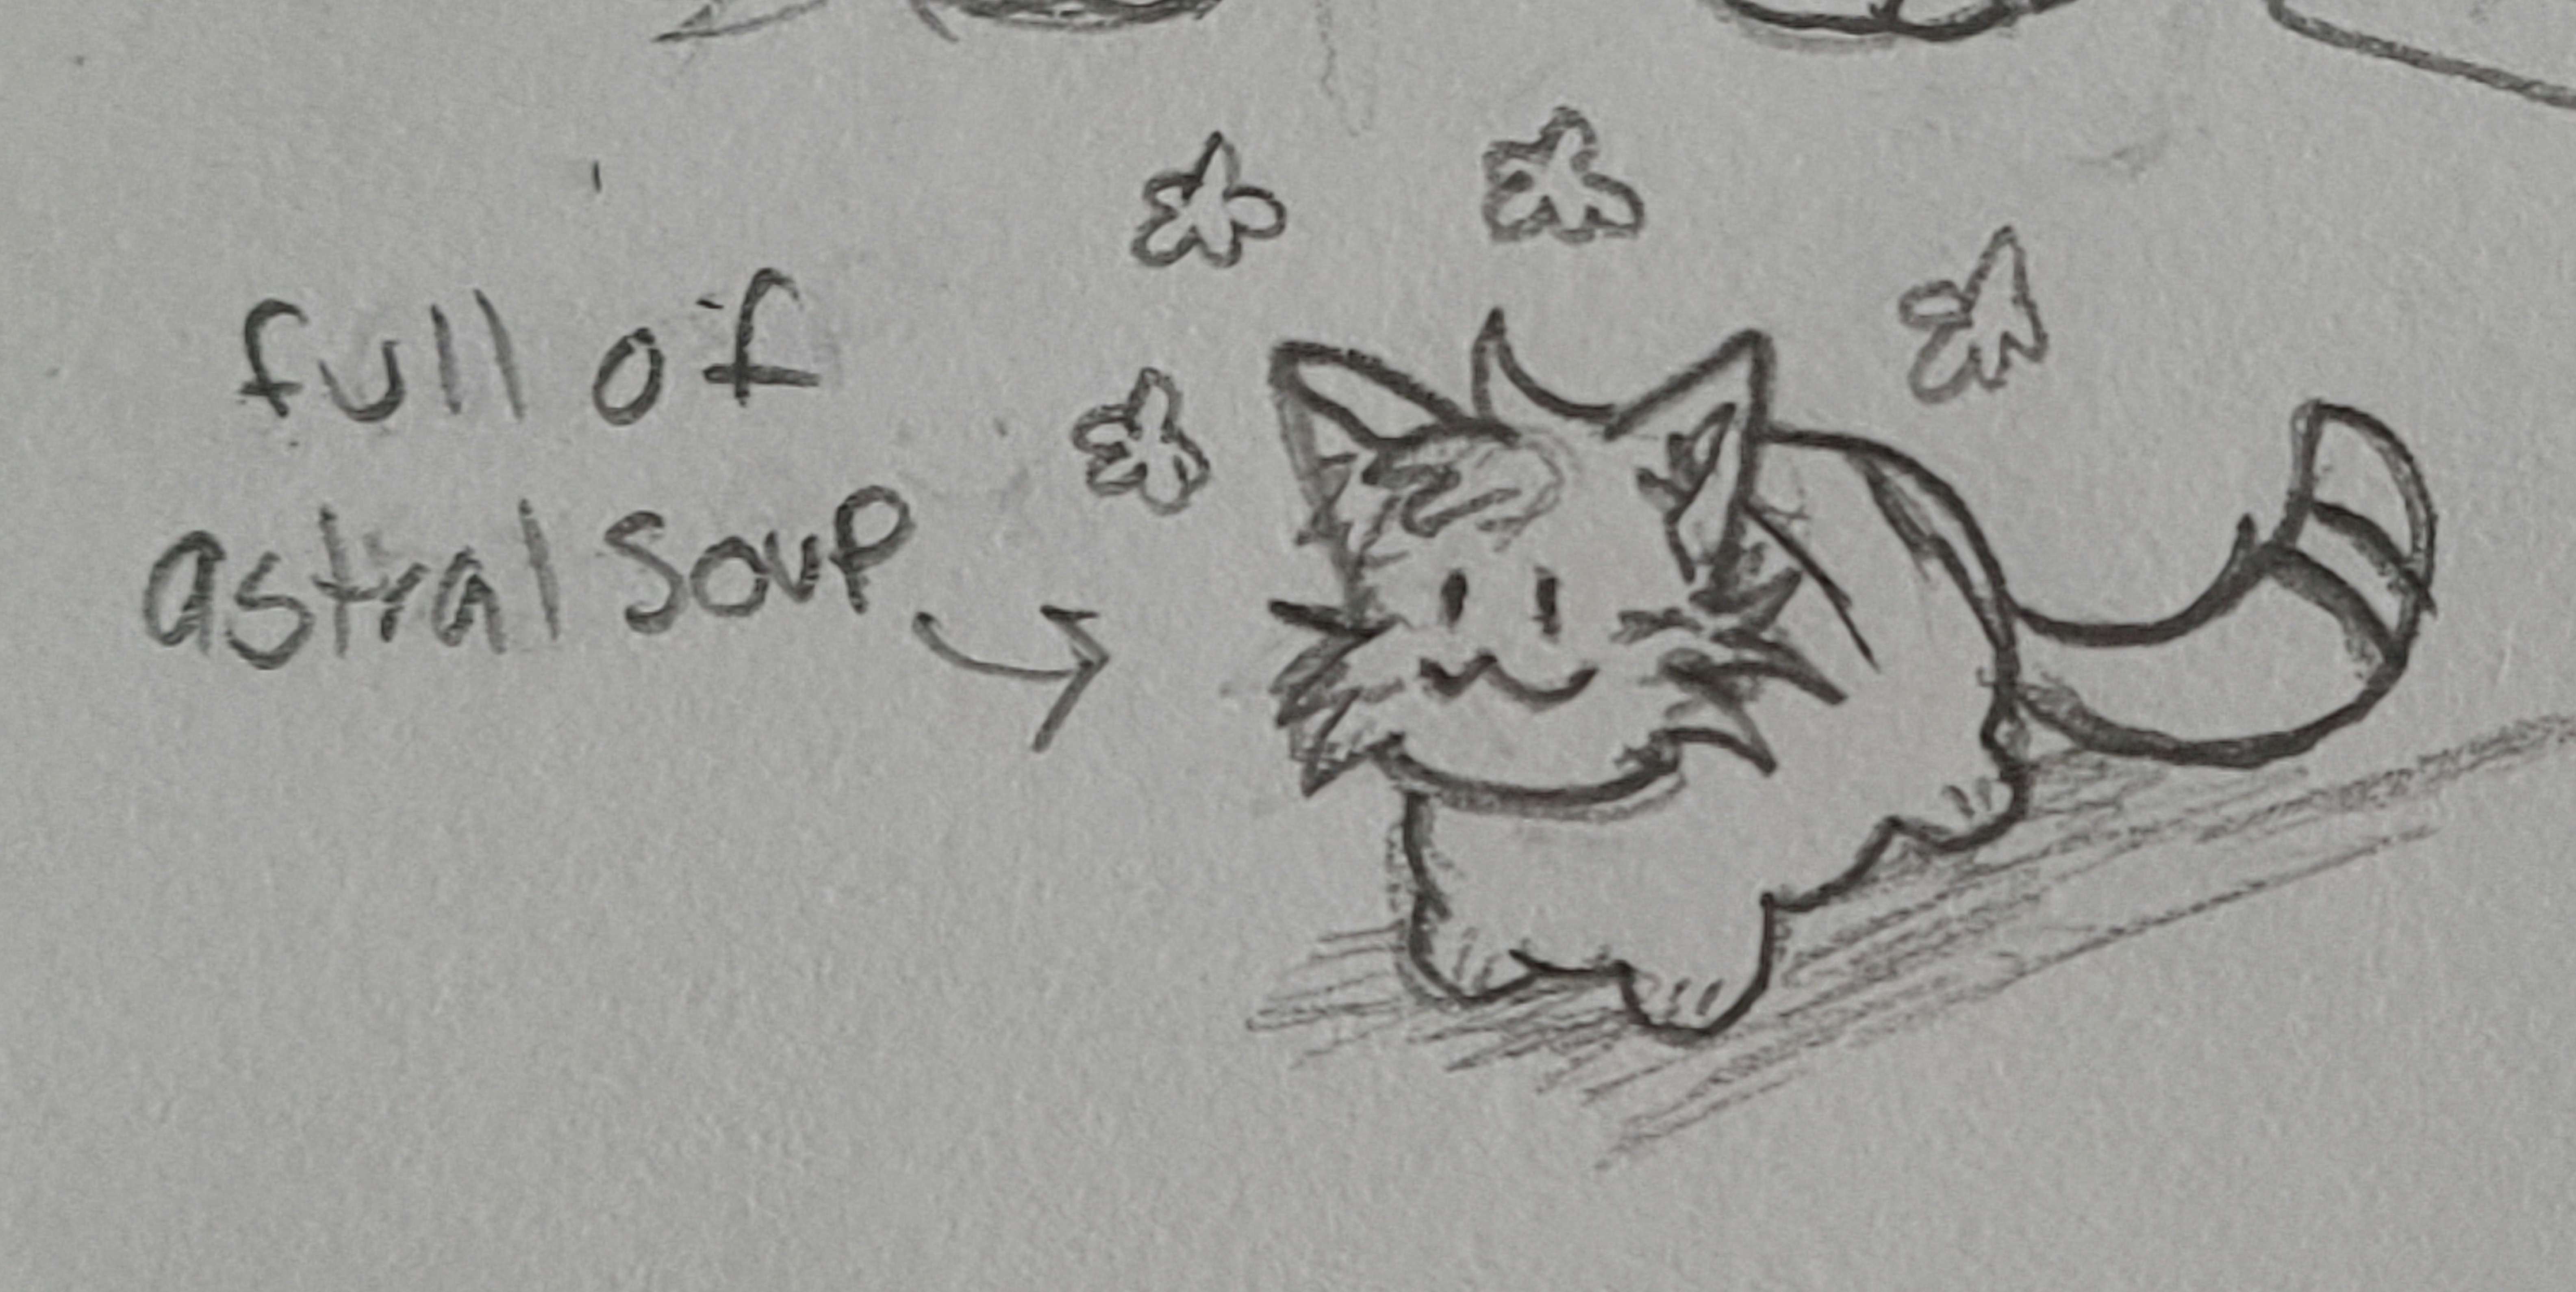 full of
astral soup